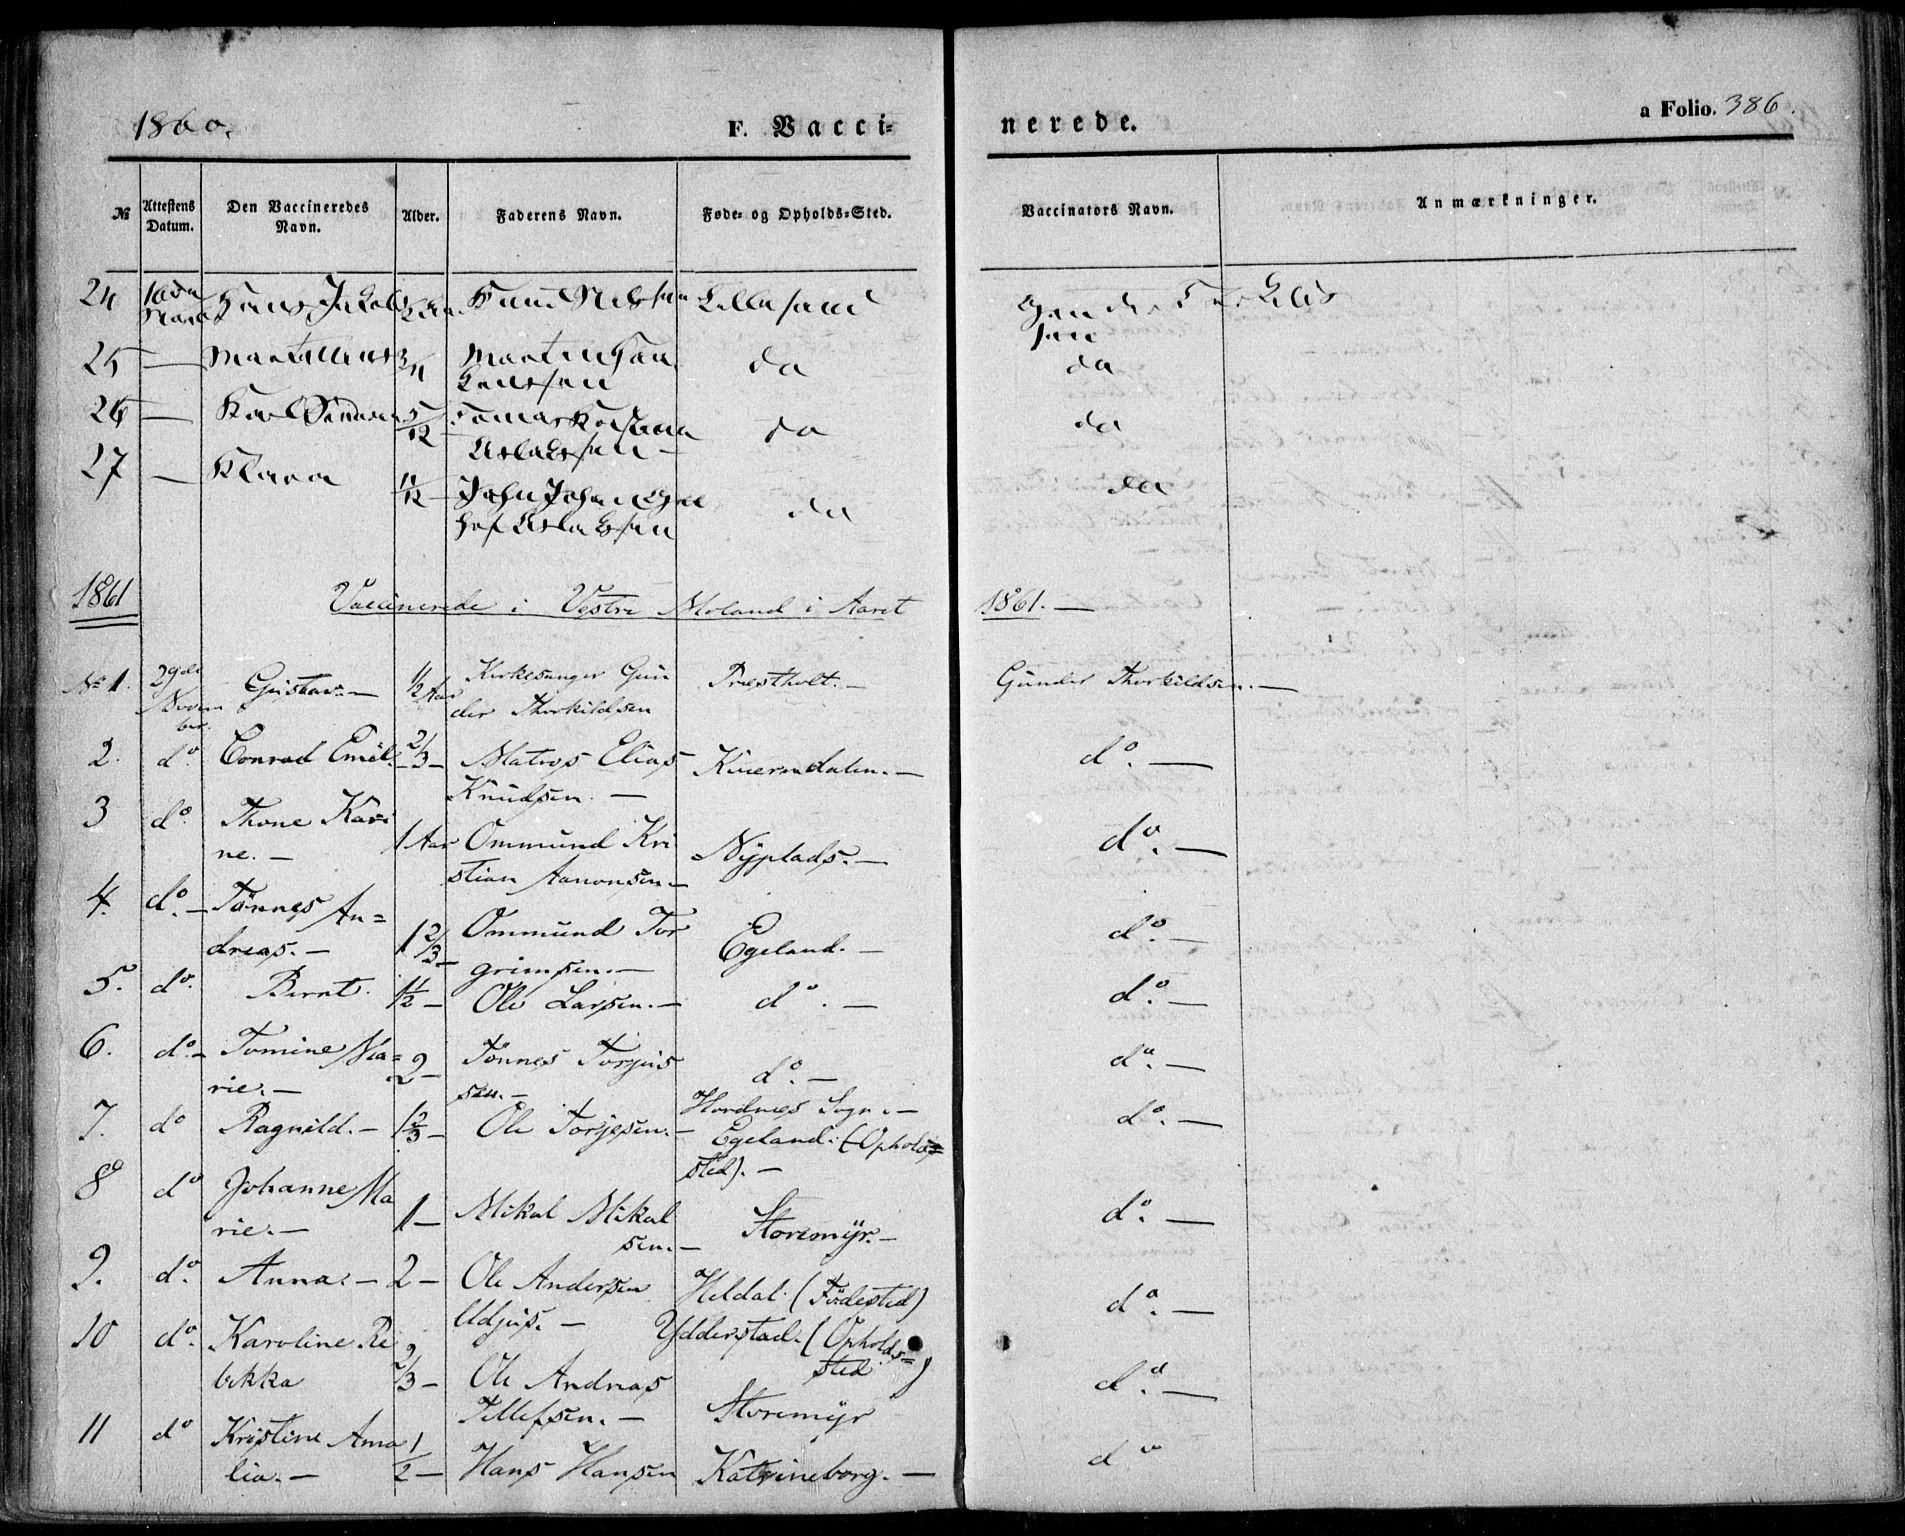 1860.
F. Vacci-
nerede.
a Folio. 386.
№
Attestens Datum.
Den Vaccineredes Navn.
Alder.
Faderens Navn.
Føde- og Opholds-Sted.
Vaccinators Navn.
Anmærkninger.
24 Hans Jakob Lillesand
25 — Martin
Larssen do do
26 — Karl 5/12
Aslaksen — do do
27 — Klara 11/12 — John Johan
Aslaksen do do
1861 Vaccinerede i Vestre Moland i Aaret 1861. —
№ 1. 29de Novem ber. Gustav. — 1/2 Aar Kirkesanger Gun
der Thorkildsen Præstholt. — Gunder Thorkildsen. —
2. do. Conrad Emil. 2/3 — Matros Elias
Knudsen. — Kuærndalen. — do. —
3 do. Thone Kari
ne. — 1 Aar Ommund Kri
stian Aanonsen. — Nyplads. — do. —
4. do. — Tønnes An=
dreas. — 1 2/3 — Ommund Tor
grimsen. — Egeland. — do. —
5. do. Bernt. 1 1/2 — Ole Larsen. — do. — do. —
6. do. — Tomine Ma=
rie. — 2 — Tønnes Torjus
sen. — do. — do. —
7. do Ragnild. — 1 2/3 — Ole Torjesen. — Hordnes Sogn. —
Egeland. (Opholds=
sted). — do. —
8 do Johanne Ma
rie. — 1 — Mikal Mikal
sen. — Storemyr. — do. —
9. do. Anna. — 2 — Ole Andersen
Udjus. — Heldal. (Fødested)
Ydderstad. (Opholds=
sted) do. —
10 do. Karoline Re
bekka 2/3 — Ole Andreas
Tellefsen. — Storemyr do. —
11 do Kristine Ama
lia. — 1/2 — Hans Hansen Katrineborg. — do